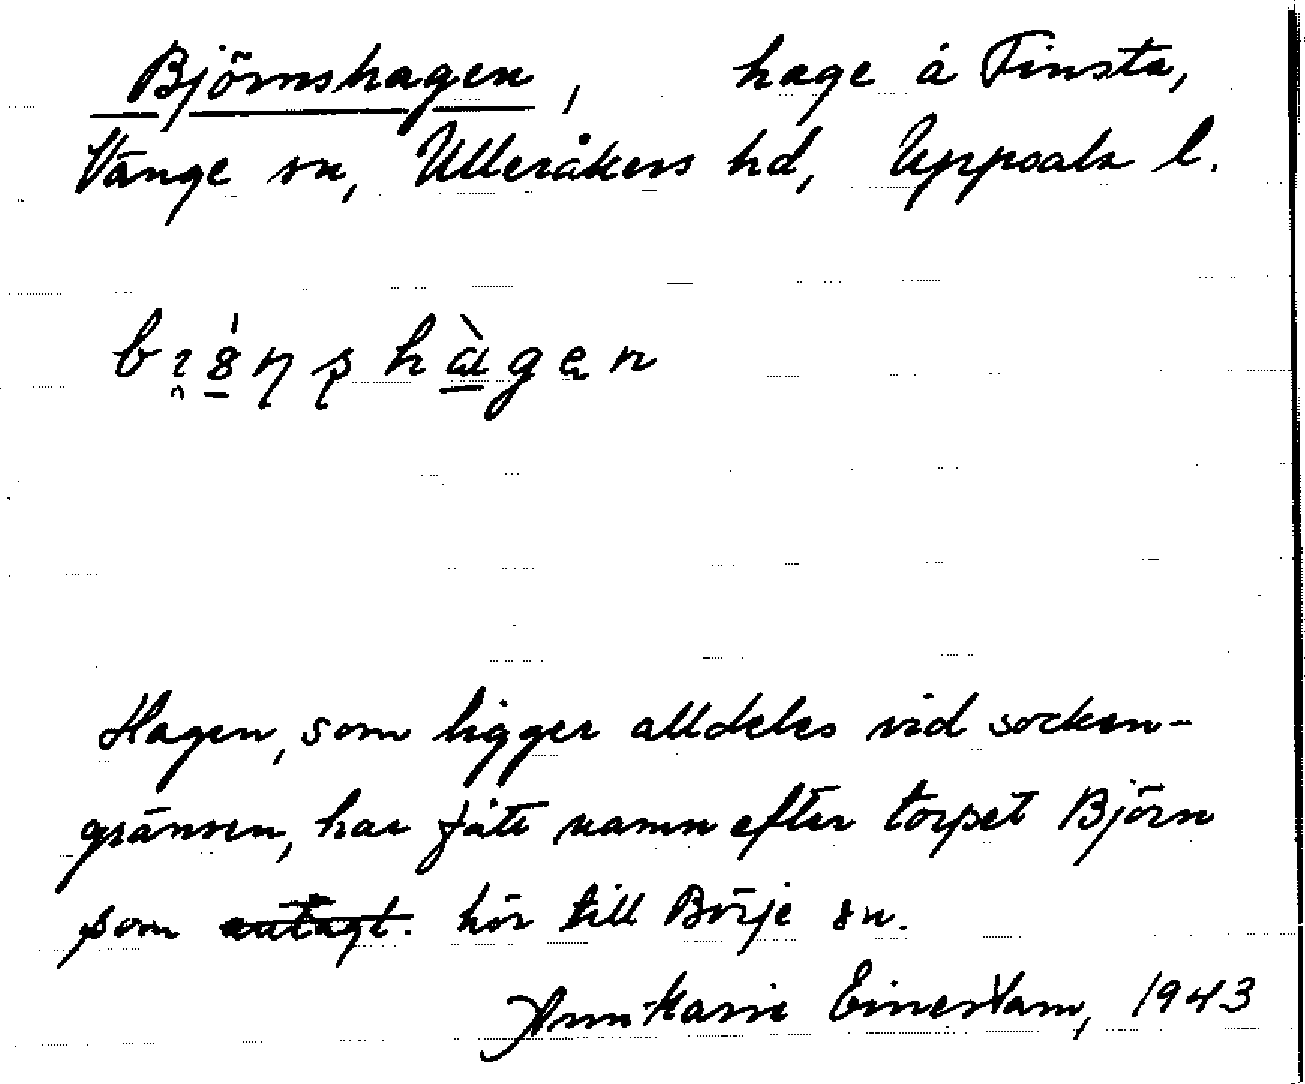 Björnshagen, hage å Finsta,
Vänge sn, Ulleråkers hd, Uppsala l.
Hagen, som ligger alldeles vid socken-
gränsen, har fått namn efter torpet Björn
som hör till Börje sn.
Ann Marie Einerstam, 1943